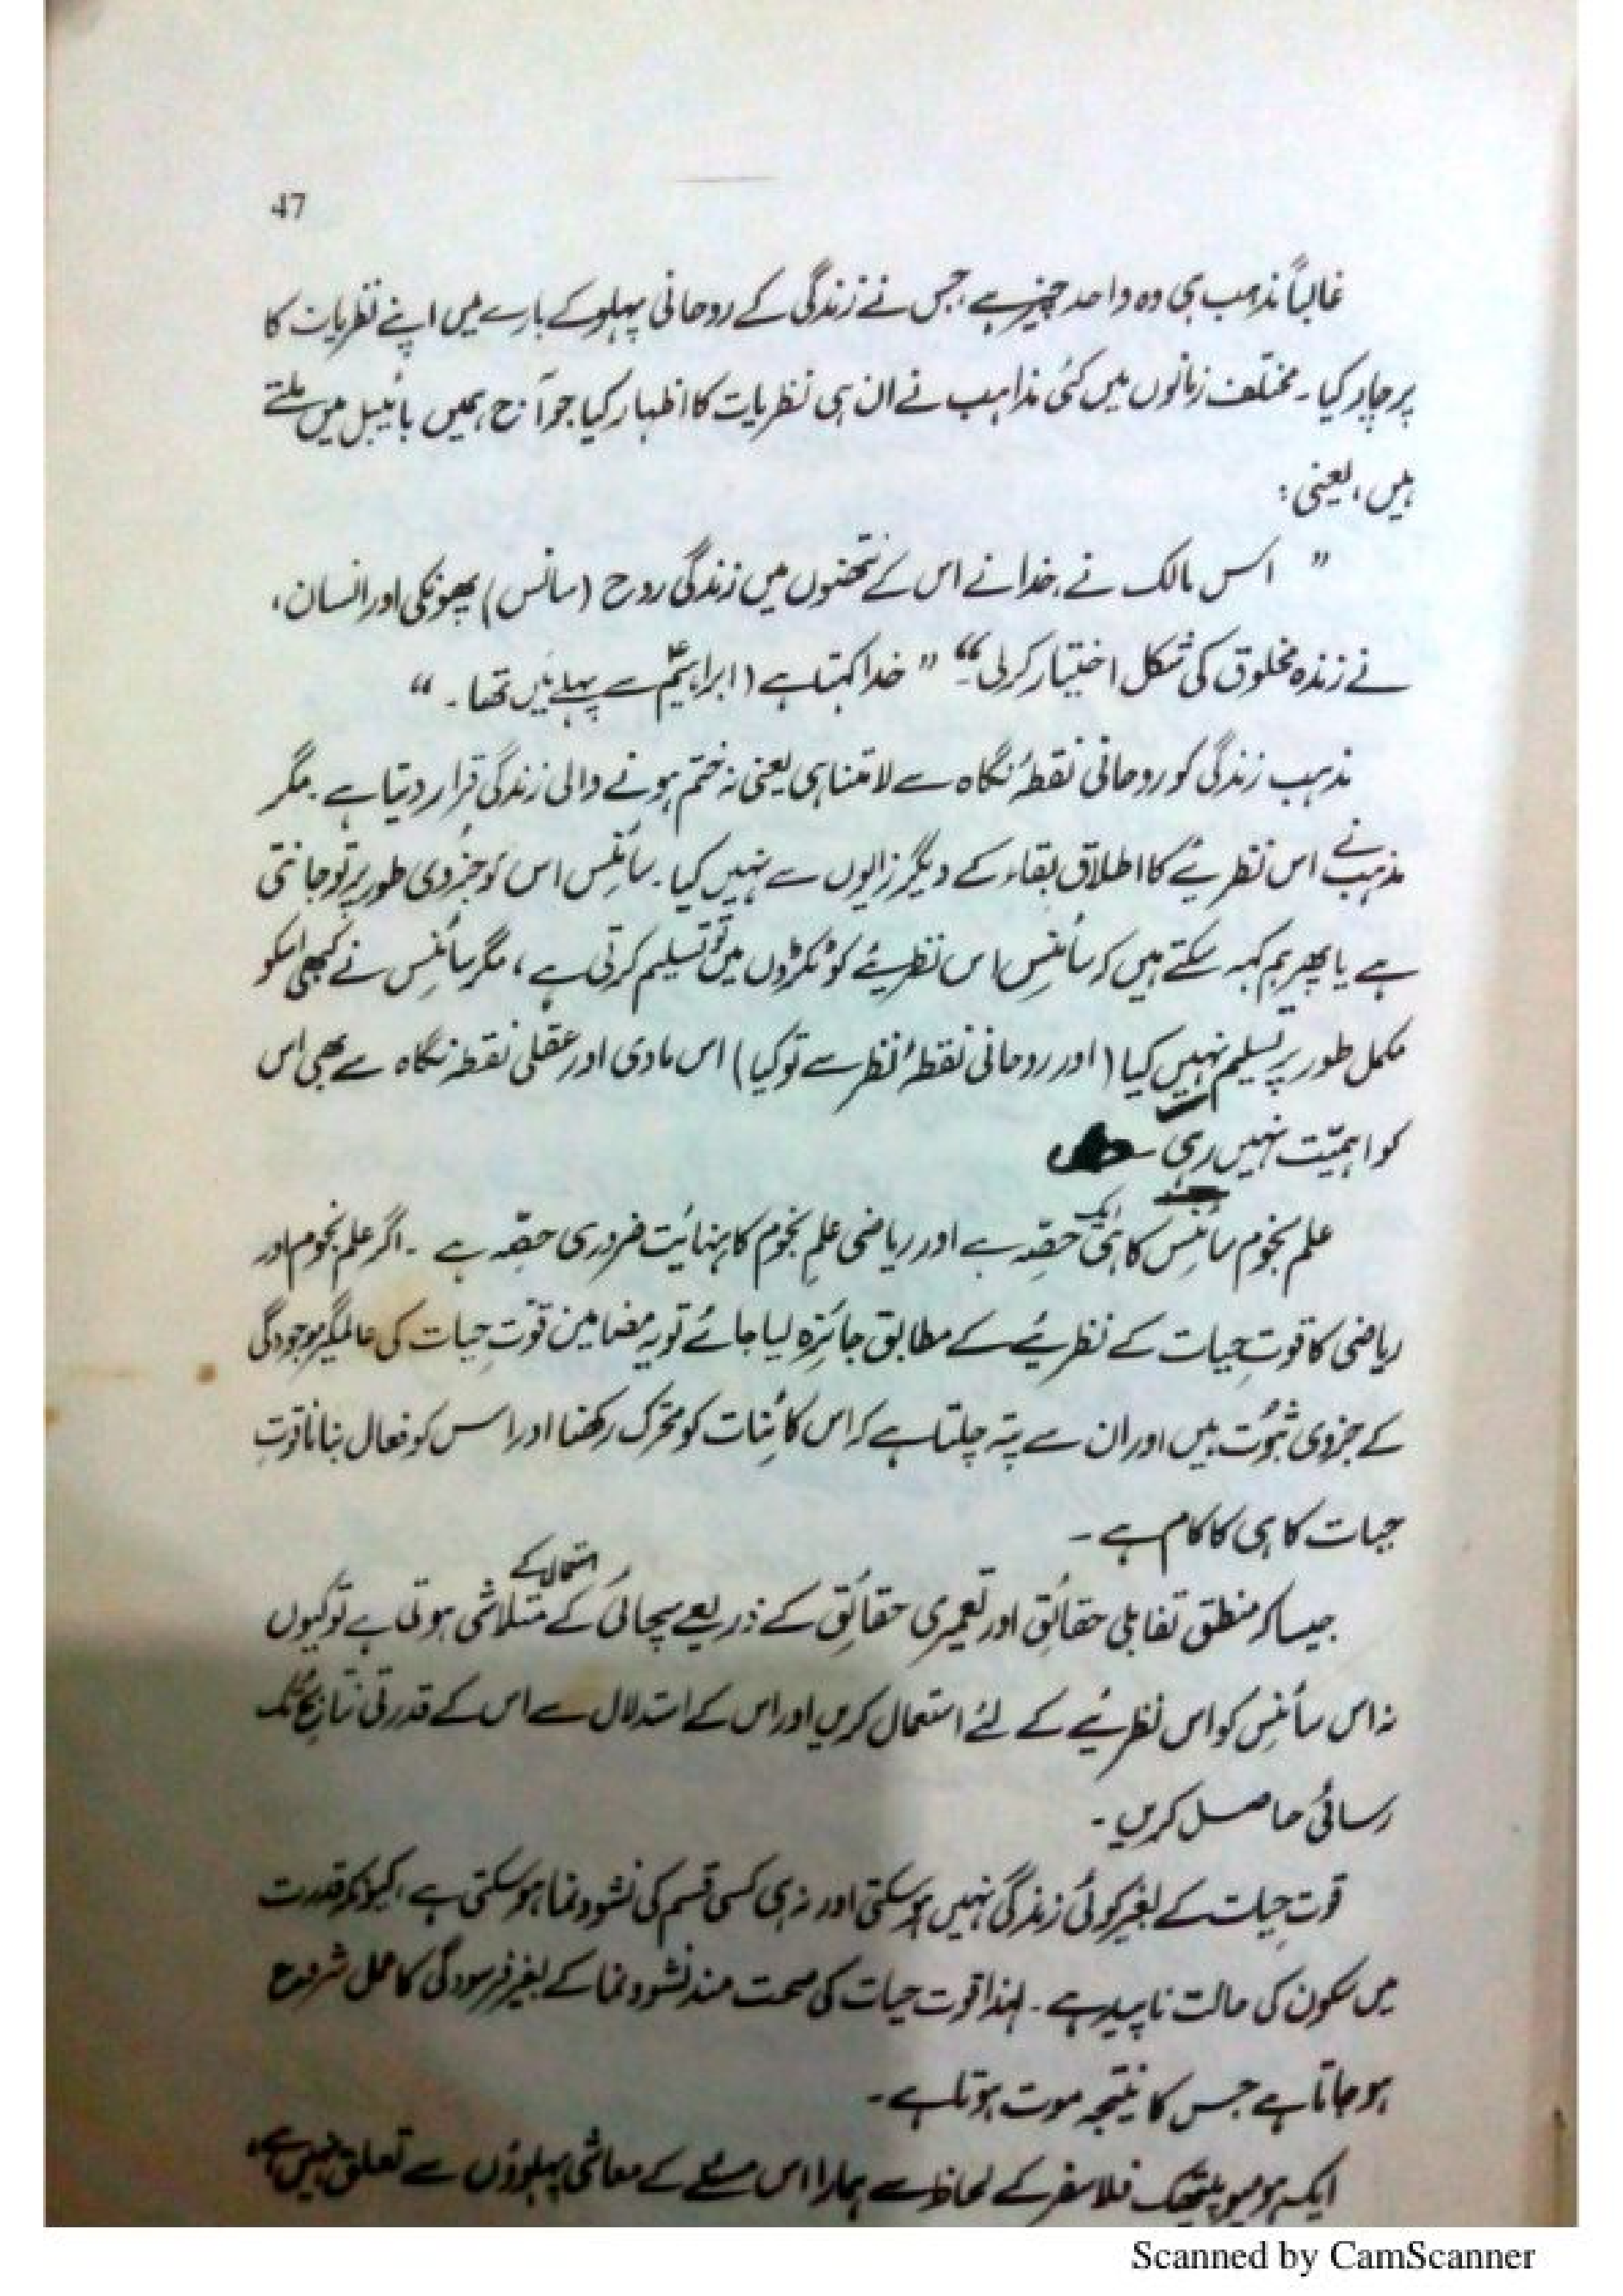 47
غالباً مذہب ہی وہ واحد چیز ہے، جس نے زندگی کے روحانی پہلو کے بارے میں اپنے نظریات کا
پرچار کیا۔ مختلف زمانوں میں کئی مذاہب نے ان ہی نظریات کا اظہار کیا جو آج ہمیں بائیبل میں ملتے
ہیں، یعنی:
” اس مالک نے، خدا نے اس کے نتھنوں میں زندگی روح (سانس) پھونکی اور انسان،
نے زندہ مخلوق کی شکل اختیار کرلی“ ” خدا کہتا ہے (ابراہیمؑ سے پہلے میں تھا۔ “
مذہب زندگی کو روحانی نقطۂ نگاہ سے لامتناہی یعنی نہ ختم ہونے والی زندگی قرار دیتا ہے۔ مگر
مذہب نے اس نظریئے کا اطلاق بقاء کے دیگر زاویوں سے نہیں کیا۔ سائنس اس کو جزوی طور پر تو جانتی
ہے یا پھر ہم کہہ سکتے ہیں کہ سائنس اس نظریئے کو ٹکڑوں میں تو تسلیم کرتی ہے، مگر سائنس نے کبھی اسکو
مکمل طور پر تسلیم نہیں کیا (اور روحانی نقطۂ نظر سے تو کیا) اس مادی اور عقلی نقطہ نگاہ سے بھی اس
کو اہمیّت نہیں رہی۔
علم نجوم سائنس کا ہی ایک حصّہ ہے اور ریاضی علمِ نجوم کا نہائیت ضروری حصّہ ہے ۔ اگر علم نجوم اور
ریاضی کا قوتِ حیات کے نظریئے کے مطابق جائزہ لیا جائے تو یہ مضامین قوّتِ حیات کی عالمگیر موجودگی
کے جزوی ثبوُت ہیں اور ان سے پتہ چلتا ہے کہ اس کائنات کو متحرک رکھنا اور اس کو فعال بنانا قوتِ
حیات کا ہی کا کام ہے ۔
جیسا کہ منطق تقابلی حقائق اور تعمیری حقائق کے ذریعے سچائی کے استعمال کے متلاشی ہوتی ہے تو کیوں
نہ اس سائنس کو اس نظریئے کے لئے استعمال کریں اور اس کے استدلال سے اس کے قدرتی نتائج تک
رسائی حاصل کریں ۔
قوتِ حیات کے بغیر کوئی زندگی نہیں ہو سکتی اور نہ ہی کسی قسم کی نشوونما ہو سکتی ہے، کیونکہ قدرت
میں سکون کی حالت ناپید ہے ۔ لہٰذا قوت حیات کی صحت مند نشوونما کے بغیر فرسودگی کا عمل شروع
ہو جاتا ہے جس کا نتیجہ موت ہوتا ہے ۔
ایک ہومیوپیتھک فلاسفر کے لحاظ سے ہمارا اس مسئلے کے معاشی پہلوؤں سے تعلق نہیں ہے،
Scanned by CamScanner